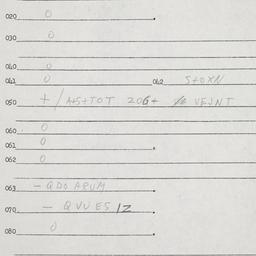 020 0
030 0
040 0
041 0 042 S+OXN
050 + / A+S+TOT 206+ VEJNT
060 0
061 0
062 0
063 - QDO ARUM
070 - QVVES IZ
080 0